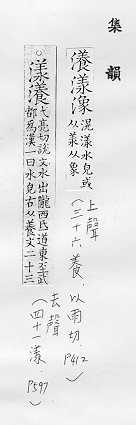 集韻
瀁漾潒 滉漾水皃或
从羕从象
上聲
(三十六養.
以兩切.
P412
)
漾瀁 弋亮切說文水出隴西氐道東至武
都為漢一曰水皃古从養文二十三
去聲
(四十一漾.
P597
)